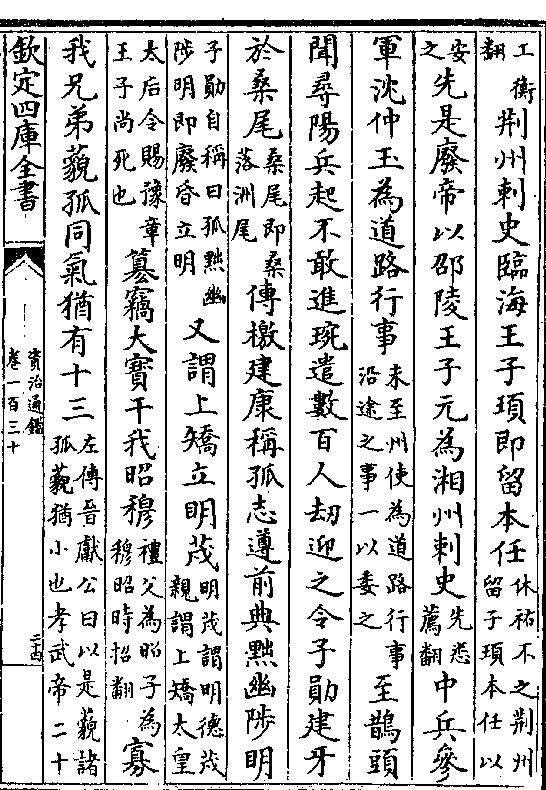 工衡翻荆州刺史臨海王子頊即留本任休祐不之荆州留子頊本任以
安之先是廢帝以邵陵王子元為湘州刺史先悉薦翻中兵參
軍沈仲玉為道路行事未至州使為道路行事沿途之事一以委之至鵲頭
聞尋陽兵起不敢進琬遣數百人劫迎之令子勛建牙
於桑尾桑尾即桑落洲尾傳檄建康稱孤志遵前典黜幽陟明
子勛自稱曰孤黜幽陟明即廢昏立明又謂上矯立明茂明茂謂明德茂親謂上矯太皇
太后令賜豫章王子尚死也簒竊大寶干我昭穆禮父為昭子為穆昭時招翻寡
我兄弟藐孤同氣猶有十三左傳晉獻公曰以是藐諸孤藐猶小也孝武帝二十
欽定四庫全書
資治通鑑
卷一百三十
二十四